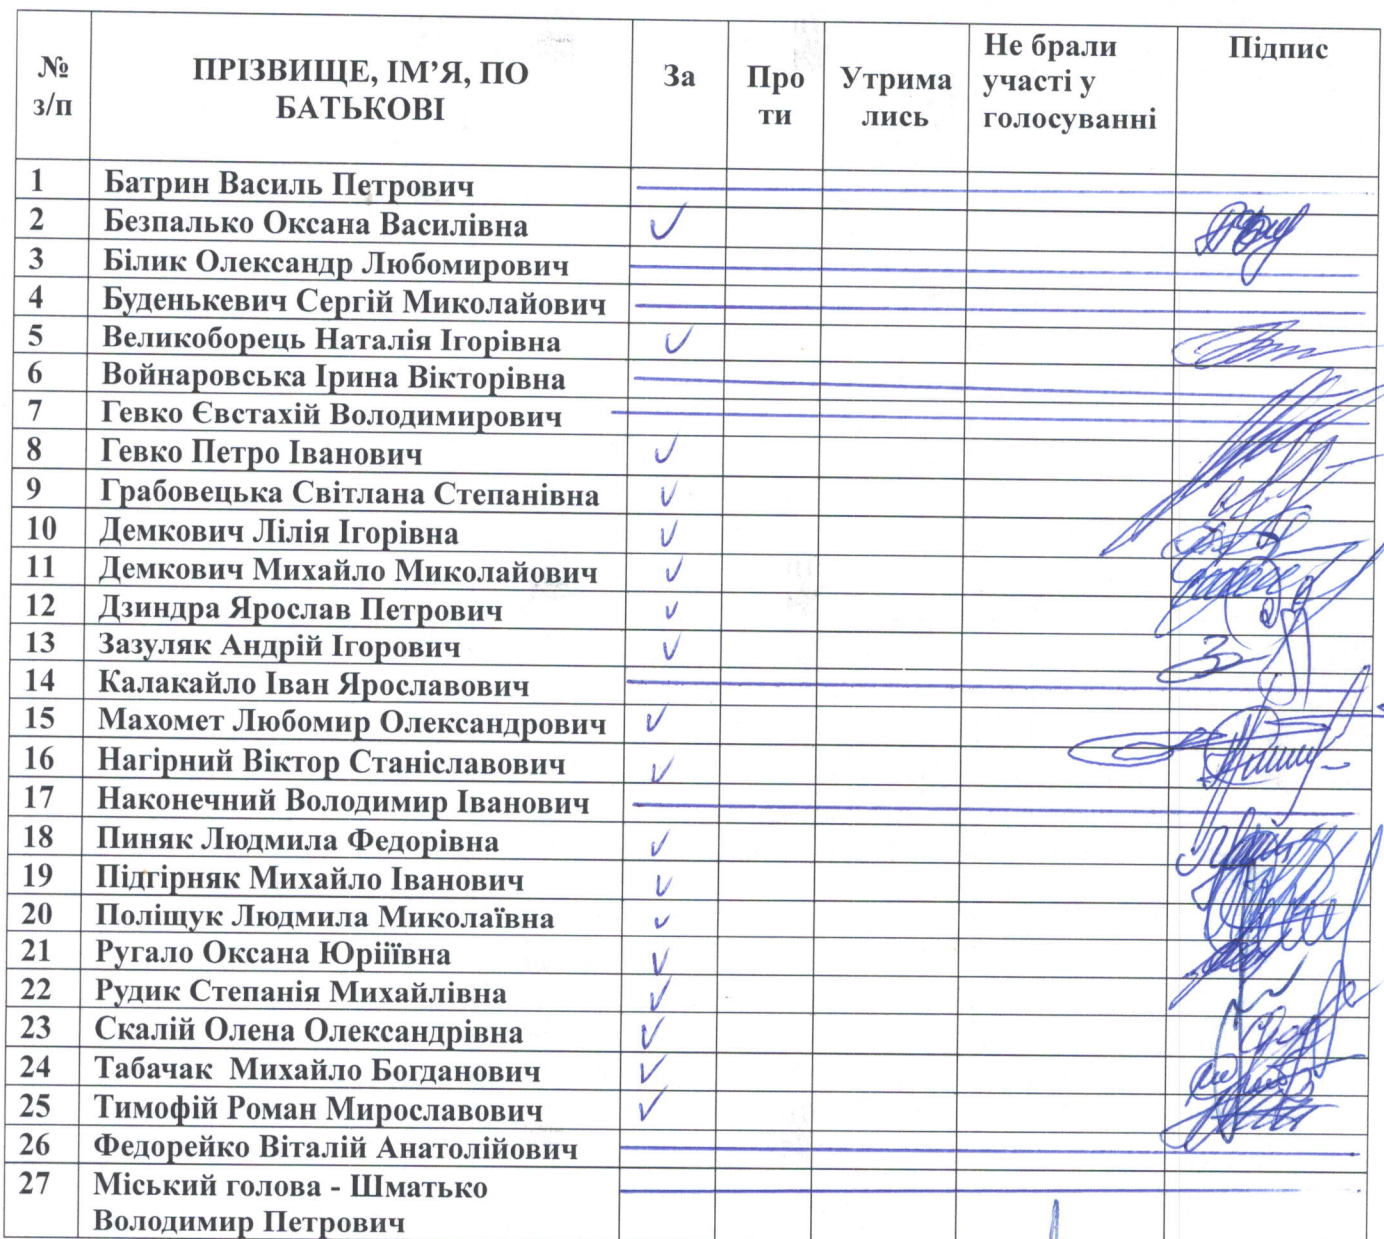 № з/п ПРІЗВИЩЕ, ІМ’Я, ПО БАТЬКОВІ За Про ти Утрима лись Не брали участі у голосуванні Підпис
1 Батрин Василь Петрович
2 Безпалько Оксана Василівна ✓
3 Білик Олександр Любомирович
4 Буденькевич Сергій Миколайович
5 Великоборець Наталія Ігорівна ✓
6 Войнаровська Ірина Вікторівна
7 Гевко Євстахій Володимирович
8 Гевко Петро Іванович ✓
9 Грабовецька Світлана Степанівна ✓
10 Демкович Лілія Ігорівна ✓
11 Демкович Михайло Миколайович ✓
12 Дзиндра Ярослав Петрович ✓
13 Зазуляк Андрій Ігорович ✓
14 Калакайло Іван Ярославович
15 Махомет Любомир Олександрович ✓
16 Нагірний Віктор Станіславович ✓
17 Наконечний Володимир Іванович
18 Пиняк Людмила Федорівна ✓
19 Підгірняк Михайло Іванович ✓
20 Поліщук Людмила Миколаївна ✓
21 Ругало Оксана Юріїївна ✓
22 Рудик Степанія Михайлівна ✓
23 Скалій Олена Олександрівна ✓
24 Табачак Михайло Богданович ✓
25 Тимофій Роман Мирославович ✓
26 Федорейко Віталій Анатолійович
27 Міський голова - Шматько
Володимир Петрович